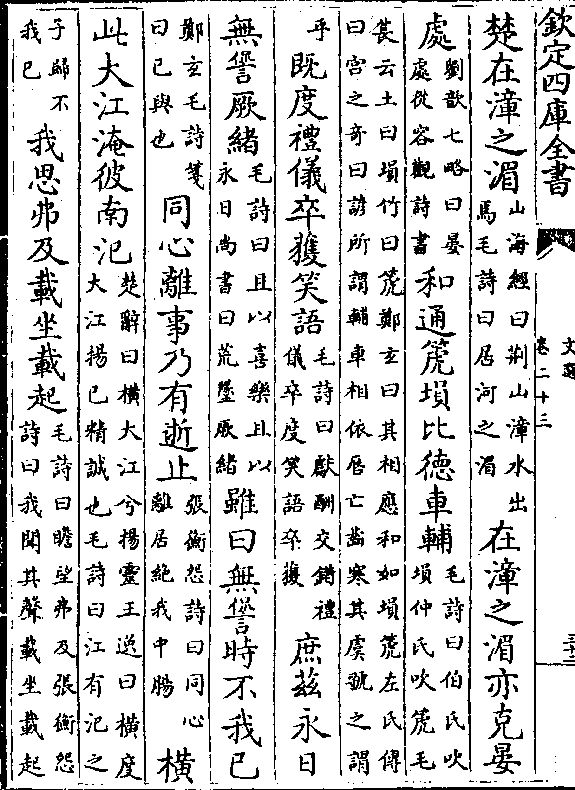 欽定四庫全書
文選
卷二十三
三十二
楚在漳之湄
山海經曰荆山漳水出
馬毛詩曰居河之湄
在漳之湄亦克晏
處
劉歆七略曰晏
處從容觀詩書
和通箎塤比德車輔
毛詩曰伯氏吹
塤仲氏吹箎毛
萇云土曰塤竹曰箎鄭玄曰其相應和如塤箎左氏傳
曰宫之奇曰諺所謂輔車相依唇亡齒寒其虞虢之謂
乎
既度禮儀卒獲笑語
毛詩曰獻酬交錯禮
儀卒度笑語卒獲
庶兹永日
無諐厥緒
毛詩曰且以喜樂且以
永日尚書曰荒墜厥緒
雖曰無諐時不我已
鄭玄毛詩箋
曰已與也
同心離事乃有逝止
張衡怨詩曰同心
離居絶我中腸
横
此大江淹彼南汜
楚辭曰横大江兮揚靈王逸曰横度
大江揚已精誠也毛詩曰江有汜之
子歸不
我已
我思弗及載坐載起
毛詩曰瞻望弗及張衡怨
詩曰我聞其聲載坐載起